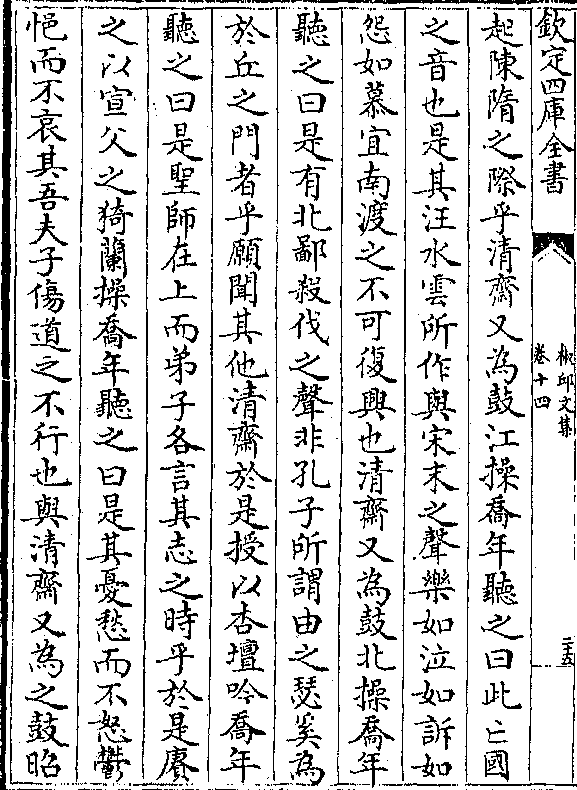 欽定四庫全書
椒邱文集
卷十四
二十五
起陳隋之際乎清齋又為鼓江操喬年聽之曰此亡國
之音也是其汪水雲所作與宋末之聲樂如泣如訴如
怨如慕宜南渡之不可復興也清齋又為鼓北操喬年
聽之曰是有北鄙殺伐之聲非孔子所謂由之瑟奚為
於丘之門者乎願聞其他清齋於是授以杏壇吟喬年
聽之曰是聖師在上而弟子各言其志之時乎於是賡
之以宣父之猗蘭操喬年聽之曰是其憂愁而不怒鬱
悒而不哀其吾夫子傷道之不行也與清齋又為之鼓昭